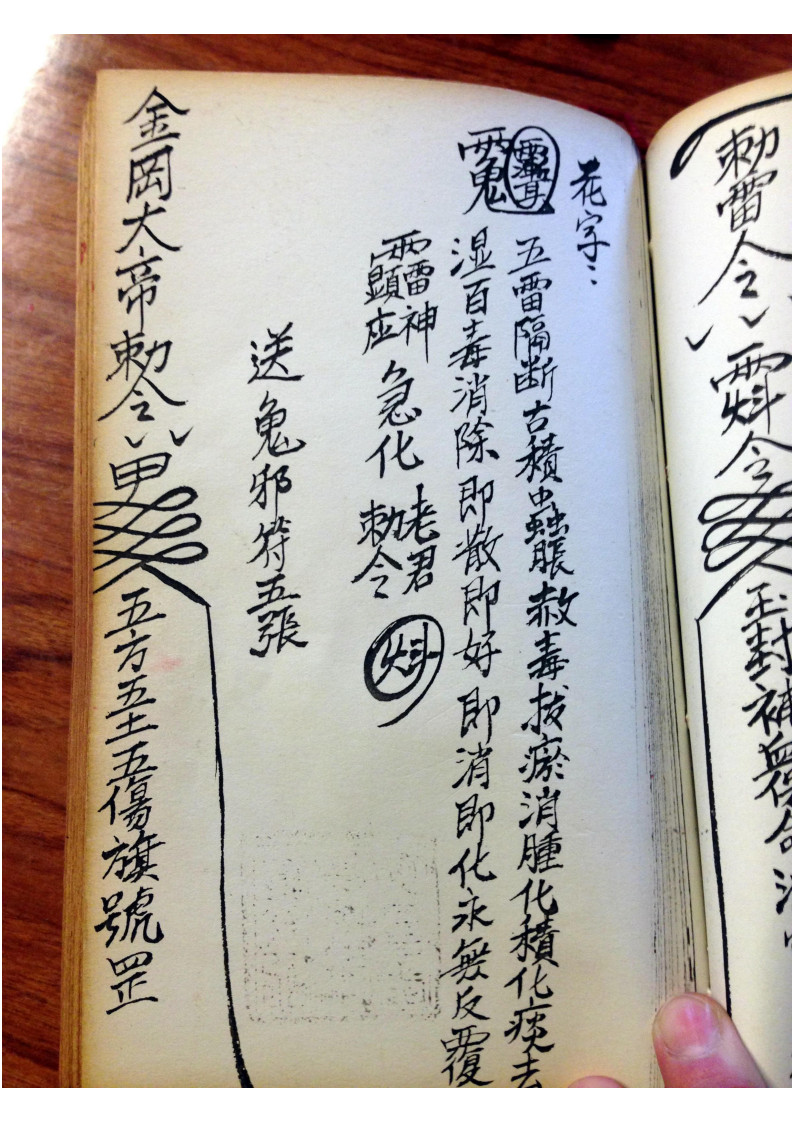 敕雷令
令
玉封補
花字:
五雷隔斷古積虫蠱脹赦毒拔瘀消腫化積化痰去
湿百毒消除即散即好即消即化永無反覆
雷神
顕应
急化
老君
敕令
送鬼邪符五張
金罡大帝敕令
甲
五方五土五傷旗號罡